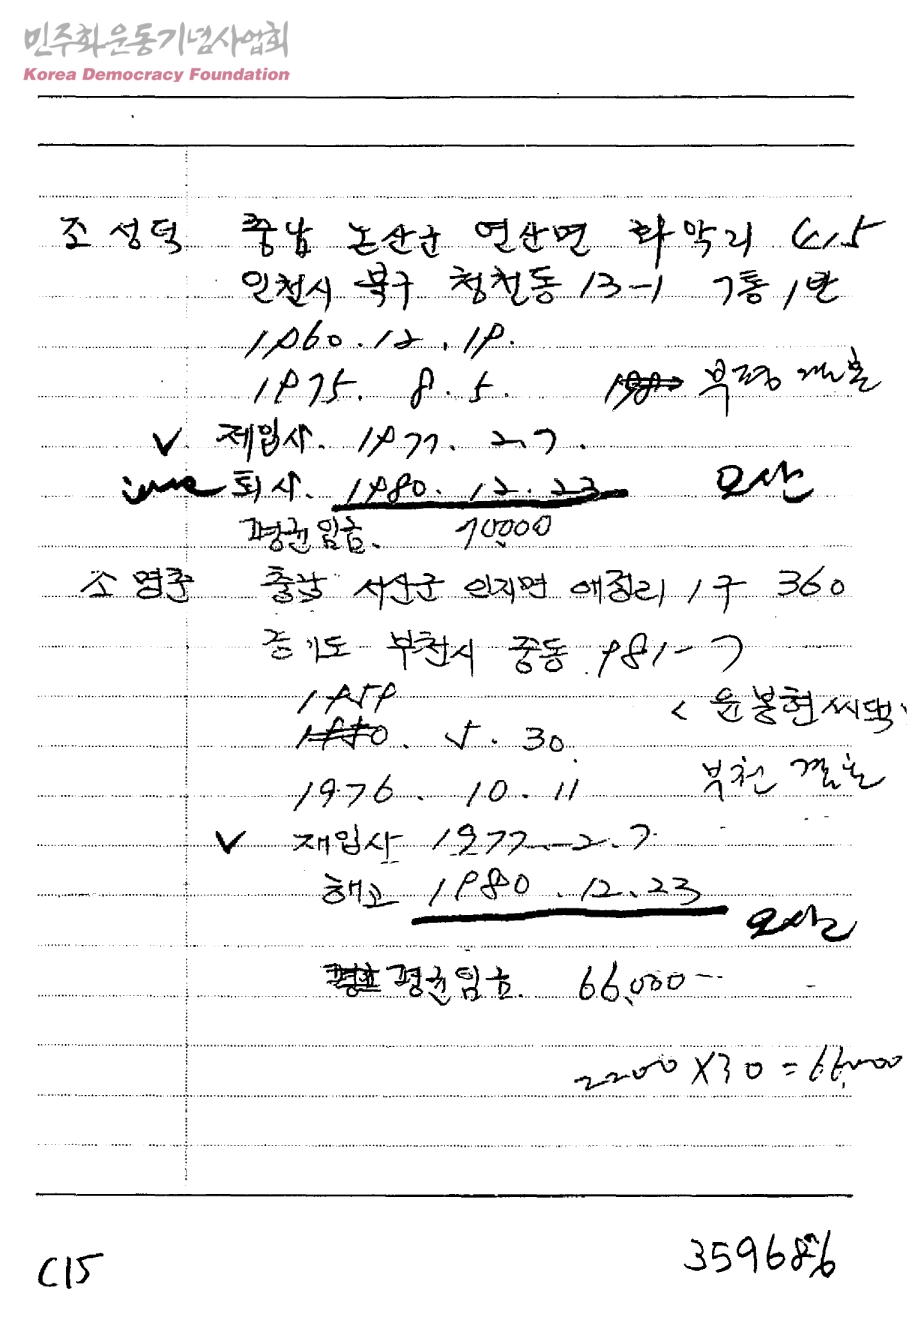 민주화운동기념사업회
Korea Democracy Foundation
조성덕 충남 논산군 연산면 화악리 415
인천시 북구 청천동 13-1 7통 1반
1960.12.19.
1975. 8. 5. 부평
재입사. 1977. 2.7.
퇴사. 1980. 12. 23 오산
평균임금. 70,000
소영준 충남 서산군 인지면 애정리 1구 360
경기도 부천시 중동 981-7
1959 <윤봉현씨댁>
5. 30
1976. 10. 11 부천
재입사 1977.-2.7
해고 1980.12.23
오산
평균임금. 66,000-
2200 X 30 = 66,000
C15